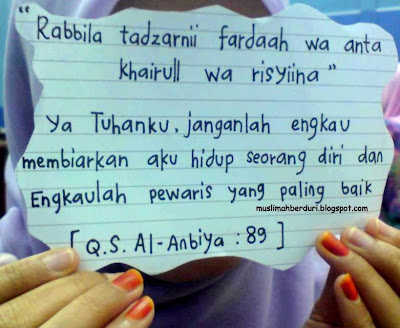 "Rabbila tadzarnii fardaah wa anta
khairull wa risyiina"
Ya Tuhanku, janganlah engkau
membiarkan aku hidup seorang diri dan
Engkaulah pewaris yang paling baik
muslimahberduri.blogspot.com
[Q.S. Al-Anbiya : 89]